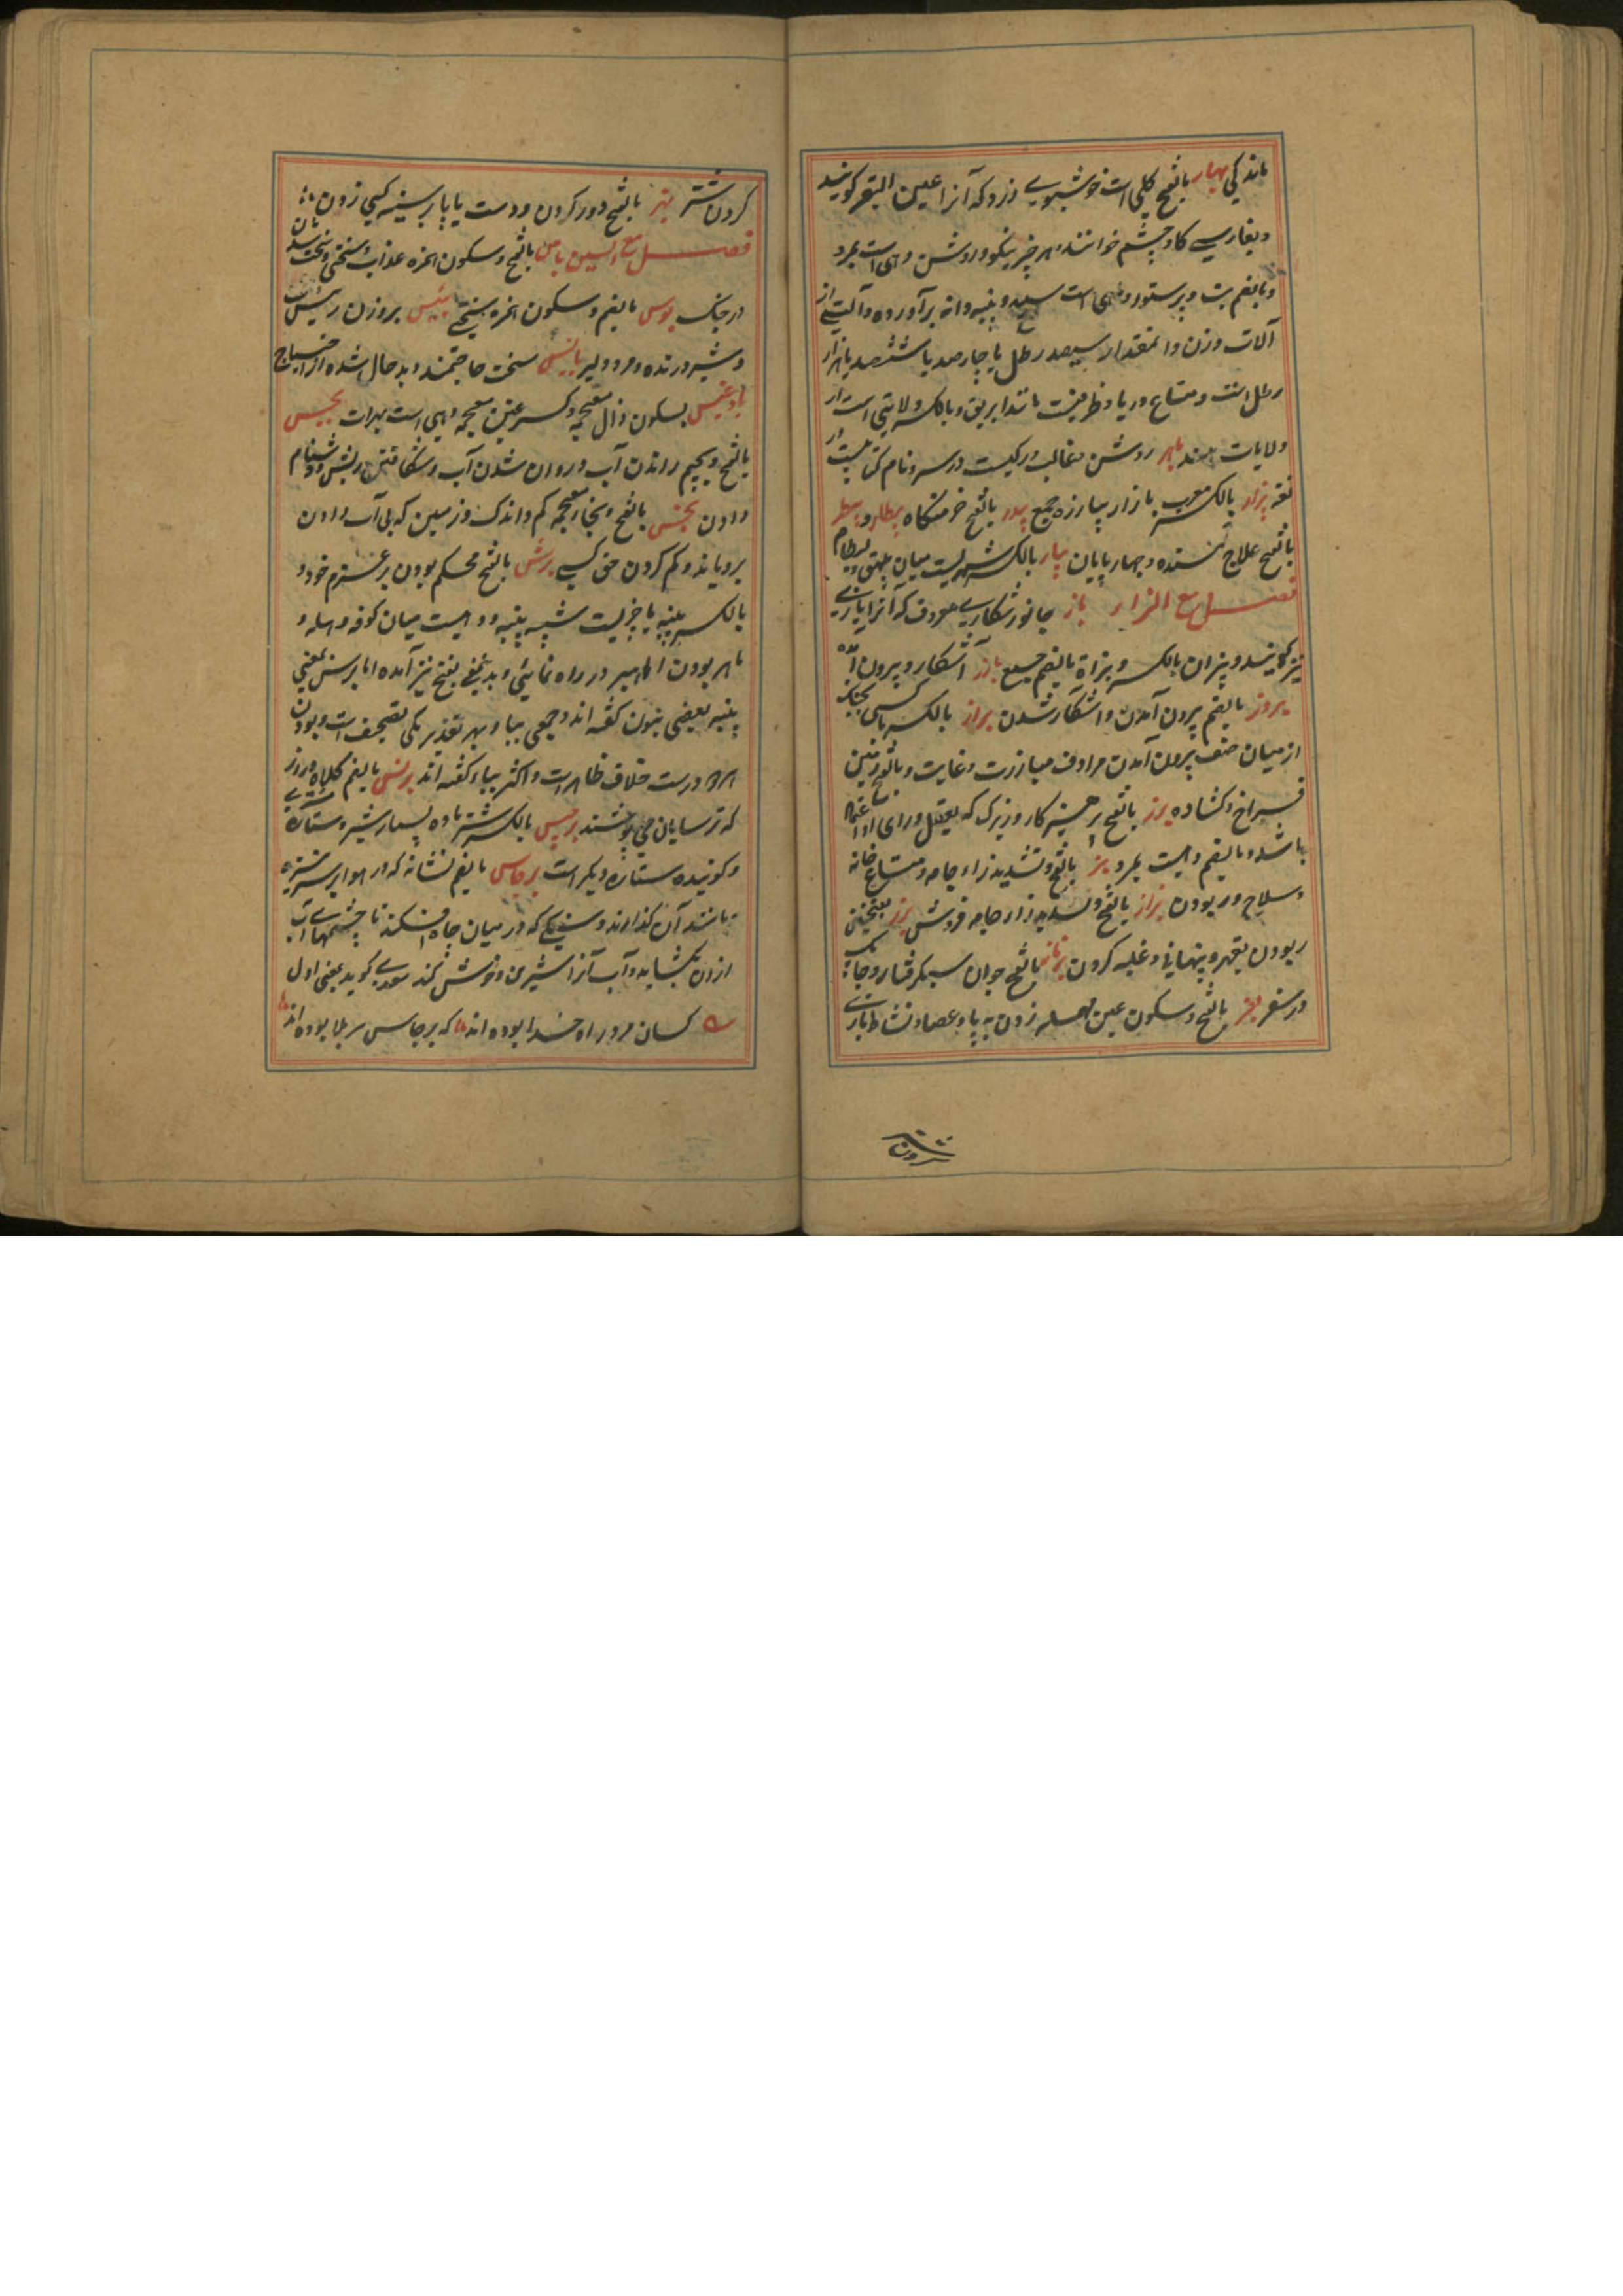 ماند کی بهار بالفتح گلی است خوشبوی زرد که آنرا عین البقر گویند
و بفارسی کاوچشم خوانند و هر چیز نیکو و روشن و دهی است بمرو
و بالضم بت و پرستو و ماهی است سپید و پنبه دانه برآورده و آلتی از
آلات وزن و آنمقدار سیصد رطل یا چارصد یا ششصد یا هزار
رطل است و متاع دریا و ظرفیست مانند ابریق و بالکسر ولایتی است از
ولایات هند باهر روشن و غالب و رکیست در سر و نام کتابیست در
فقه بزار بالکسر معرب بازار بیازره جمع بیدر بالفتح خرمنگاه بیطار و بیطر
بالفتح علاج کننده چهارپایان بیار بالکسر شهریست میان بیهق و بسطام
فصل مع الزاء باز جانور شکاری معروف که آنرا بازی
نیز گویند و بیزان بالکسر و بزاة بالضم جمع بارز آشکار و بیرون آمده
بروز بالضم بیرون آمدن و آشکار شدن براز بالکسر با کسی بجنگ
از میان صف بیرون آمدن مرادف مبارزت و غایت و بالفتح زمین
فراخ و کشاده برز بالفتح پرهیزکار و زیرک که بعقل و رای او اعتماد
باشد و بالضم دهیست بمرو بز بالفتح و تشدید زاء جامه و متاع خانه
و سلاح و ربودن بزاز بالفتح و تشدید زاء جامه فروش بزز بفتحتین
ربودن بقهر و پنهانی و غلبه کردن بالفتح جوان سبکرفتار و چابک
در سفر بعز بالفتح و سکون عین مهمله زدن به پا و عصا و نشاط بازی
کردن شتر بهز بالفتح دور کردن و دست یا پا بر سینه کسی زدن
فصل مع السین باس بالفتح و سکون همزه عذاب و سختی و سخت شدن
در جنگ بوس بالضم و سکون همزه سختی بئیس بروزن رئیس
و شیر درنده و مرد دلیر بائس سخت حاجتمند و بدحال شده از احتیاج
بادغیس بسکون ذال معجمه و کسر غین معجمه دهی است بهرات بجیس
بالفتح و بجیم راندن آب و روان شدن آب و شکافتن ریش و دشنام
دادن بخس بالفتح و بخاء معجمه کم و اندک و زمین که بی آب دادن
برویاند و کم کردن حق کسی برس بالفتح محکم بودن بر غریم خود و
بالکسر پنبه یا چیزیست شبیه پنبه و دهیست میان کوفه و حله و
ماهر بودن راهبر در راه نمائی و بدینمعنی بفتح نیز آمده اما برس بمعنی
پنبه بعضی بنون گفته اند و جمعی بباء بهر تقدیر یکی تصحیف است و بودن
هردو درست خلاف ظاهر است و اکثر بباء گفته اند برنس بالضم کلاه دراز
که ترسایان می پوشند برجیس بالکسر شتر ماده بسیار شیر و ستاره مشتری
و گویند ستاره دیگر است برجاس بالضم نشانه که در هوا بر سر نیزه
مانند آن گذارند و سنگی که در میان چاه افکند تا چشمهای آب
ازان بکشاید و آب آنرا شیرین و خوش کند سعدی گوید بمعنی اول
کسان مرد راه خدا بوده اند که برجاس بر بلا بوده اند
کردن شتر